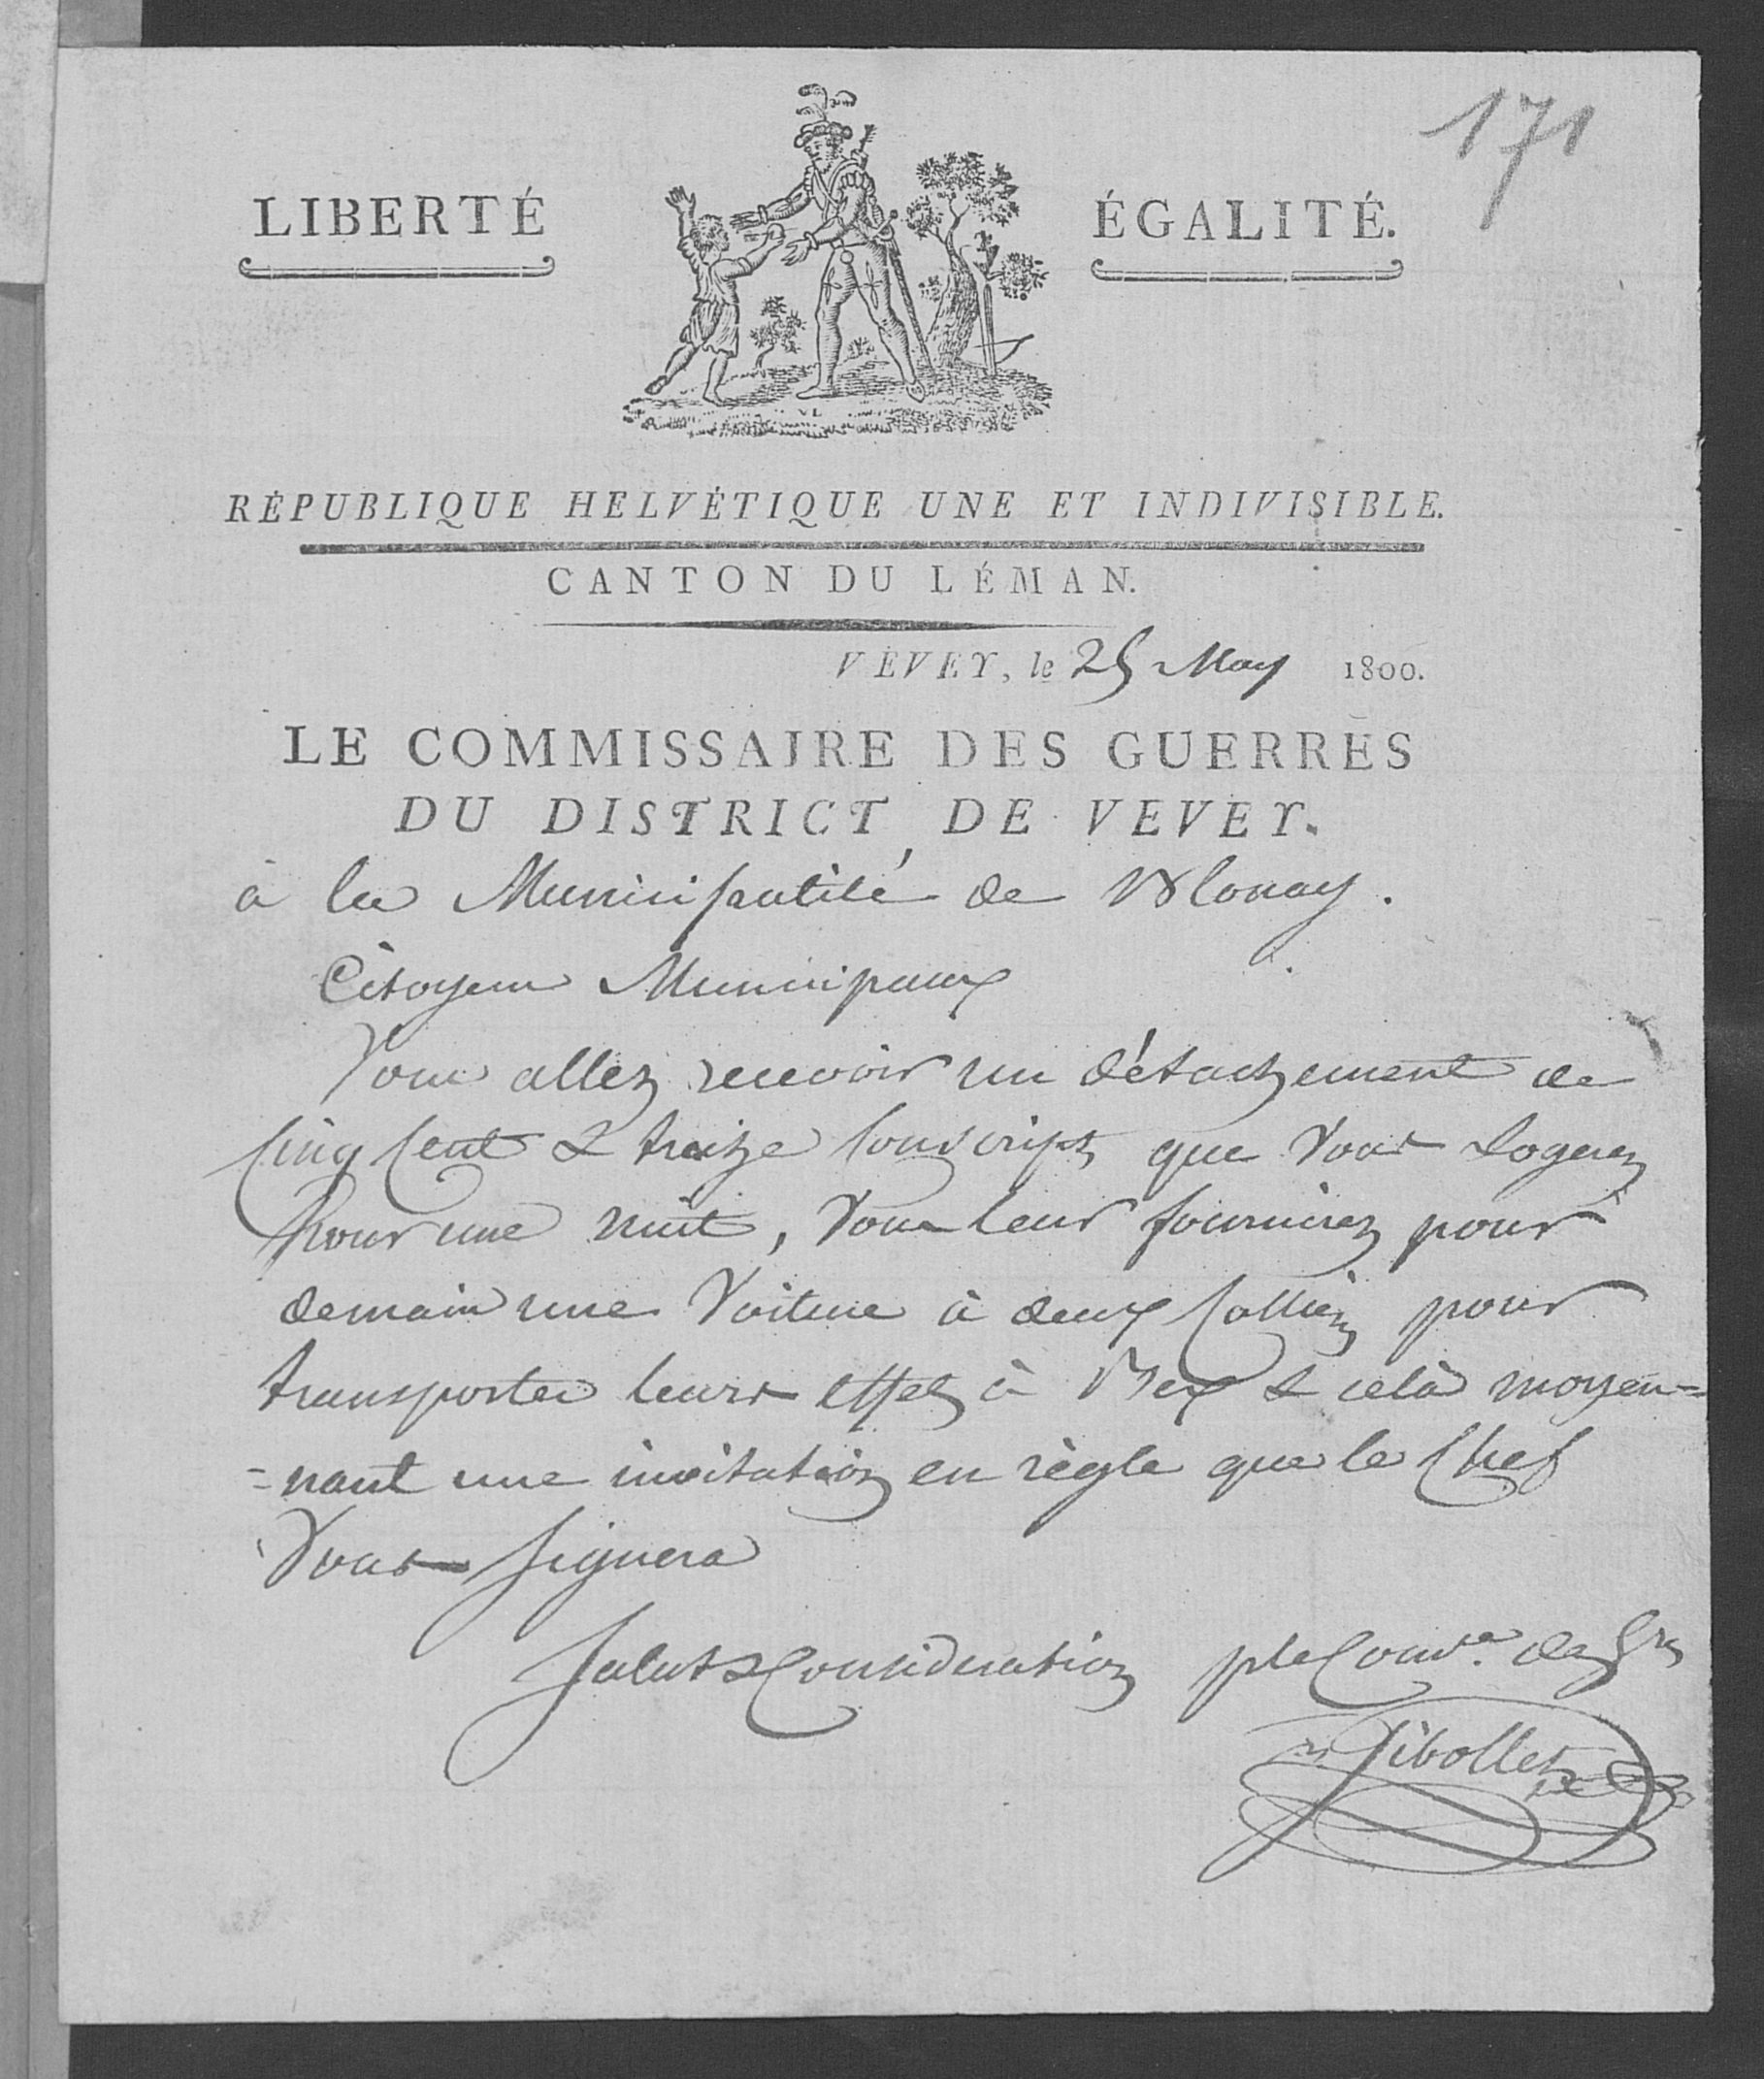 171
LIBERTÉ ÉGALITÉ.
RÉPUBLIQUE HELVÉTIQUE UNE ET INDIVISIBLE.
CANTON DU LÉMAN.
VEVEY, le 25 May 1800.
LE COMMISSAIRE DES GUERRES
DU DISTRICT DE VEVEY.
à la Municipalité de Blonay.
Citoyens Municipaux
Vous allez recevoir un détachement de
Cinq Cent & treize Conscripts que Vous Logerez
Pour une nuit, Vous leur fournirez pour
demain une Voiture à deux Colliers pour
transporter leurs effets à Bex & celà moyen=
=nant une invitation en règle que le Chef
Vous signera
Salut & Consideration p le Comre. des Grs